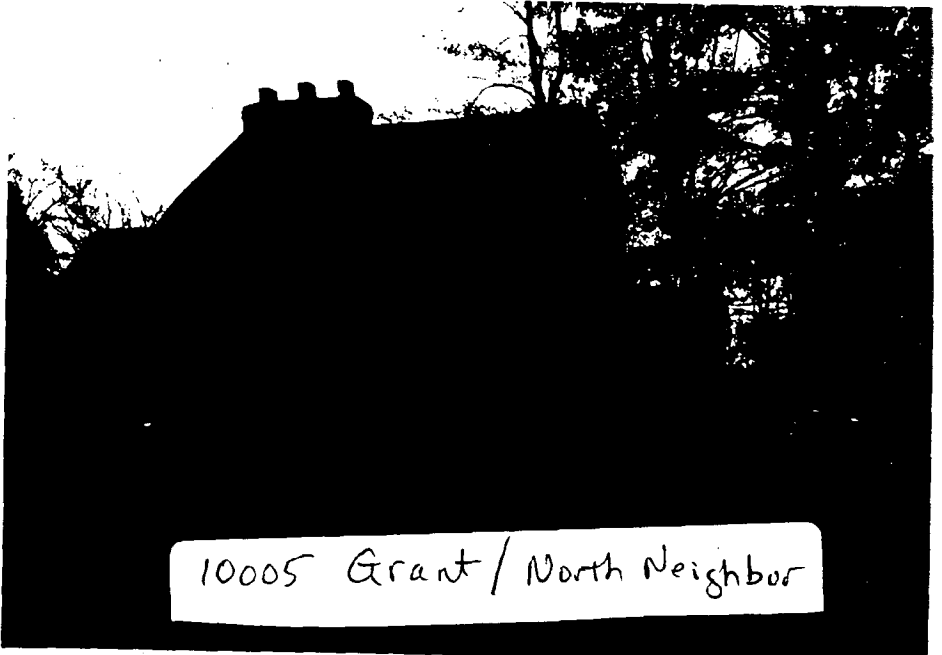 10005 Grant / North Neighbor